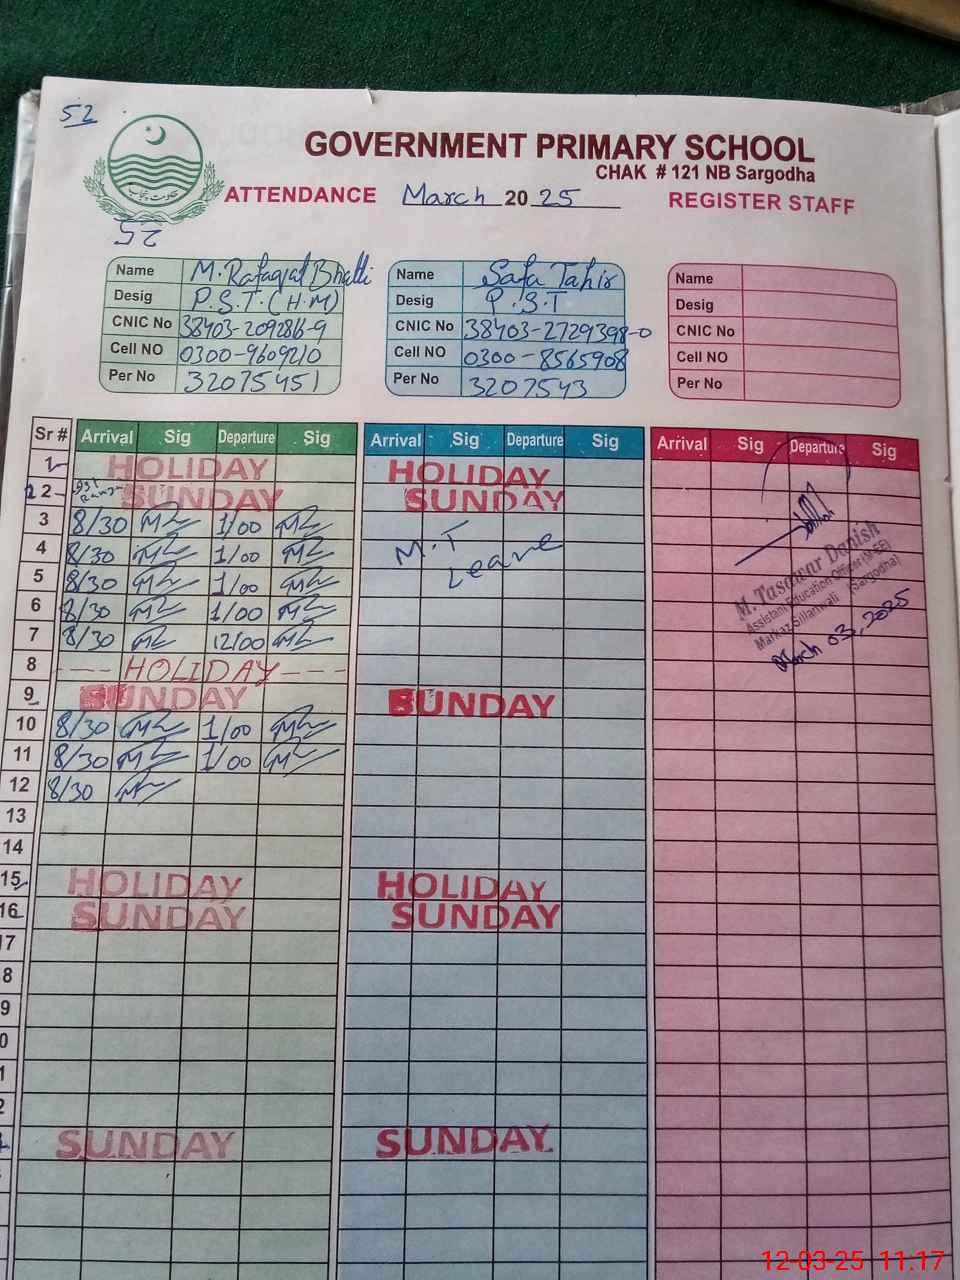 52
GOVERNMENT PRIMARY SCHOOL
CHAK # 121 NB Sargodha
ATTENDANCE March 2025 REGISTER STAFF
52
Name M. Rafaqat Bhatti
Desig P.S.T. (H.M)
CNIC No 38403-2092816-9
Cell NO 0300-9609210
Per No 32075451
Name Safa Tahir
Desig P.S.T
CNIC No 38403-2729398-0
Cell NO 0300-8565908
Per No 3207543
Name
Desig
CNIC No
Cell NO
Per No
Sr # Arrival Sig Departure Sig Arrival Sig Departure Sig Arrival Sig Departure Sig
1 HOLIDAY HOLIDAY
2 SUNDAY SUNDAY
3 8/30 1/00 M.T
4 8/30 1/00 Leave
5 8/30 1/00
6 8/30 1/00
7 8/30 12/00
8 --- HOLIDAY ---
9 SUNDAY SUNDAY
10 8/30 1/00
11 8/30 1/00
12 8/30
13
14
15 HOLIDAY HOLIDAY
16 SUNDAY SUNDAY
7
8
9
0
1
2
SUNDAY SUNDAY
M. Tasawar Danish
Assistant Education Officer (M-EE)
Markaz Sillanwali (Sargodha)
March 03, 2025
12-03-25 11:17